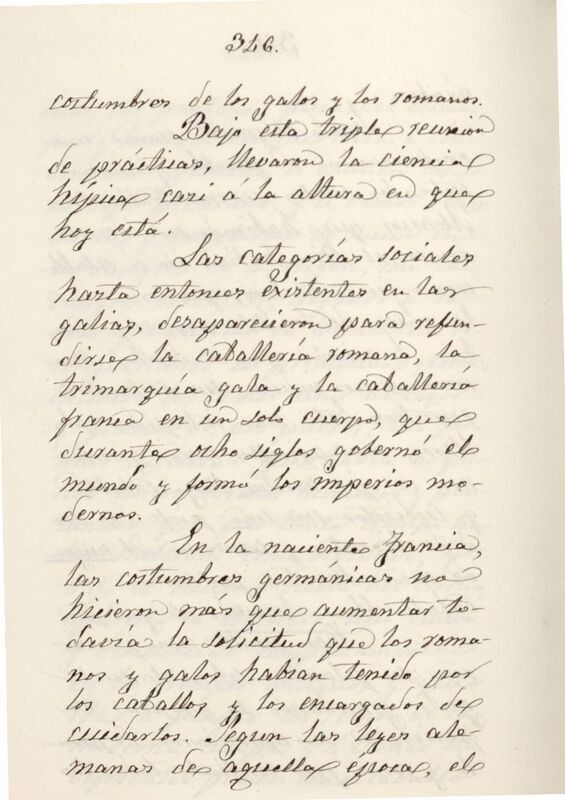 346.
costumbres de los galos y los romanos.
Bajo esta triple reunion
de prácticas, llevaron la ciencia
hípica casi á la altura en que
hoy está.
Las categorías sociales
hasta entonces existentes en las
galias, desaparecieron para refun-
dirse la caballería romana, la
trimarquía gala y la caballería
franca en un solo cuerpo, que
durante ocho siglos gobernó el
mundo y formó los imperios mo-
dernos.
En la naciente Francia,
las costumbres germánicas no
hicieron más que aumentar to-
davía la solicitud que los roma-
nos y galos habían tenido por
los caballos y los encargados de
cuidarlos. Segun las leyes ale-
manas de aquella época, el